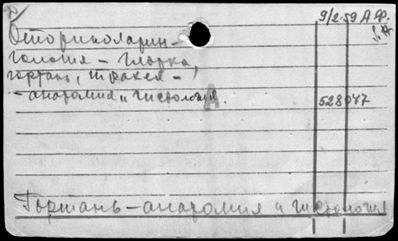 9/2-59 А.Ф.
Оториноларин-
гология - Глотка,
гортань, трахея -
- анатомия и гистология.
528047
Гортань - анатомия и гистология